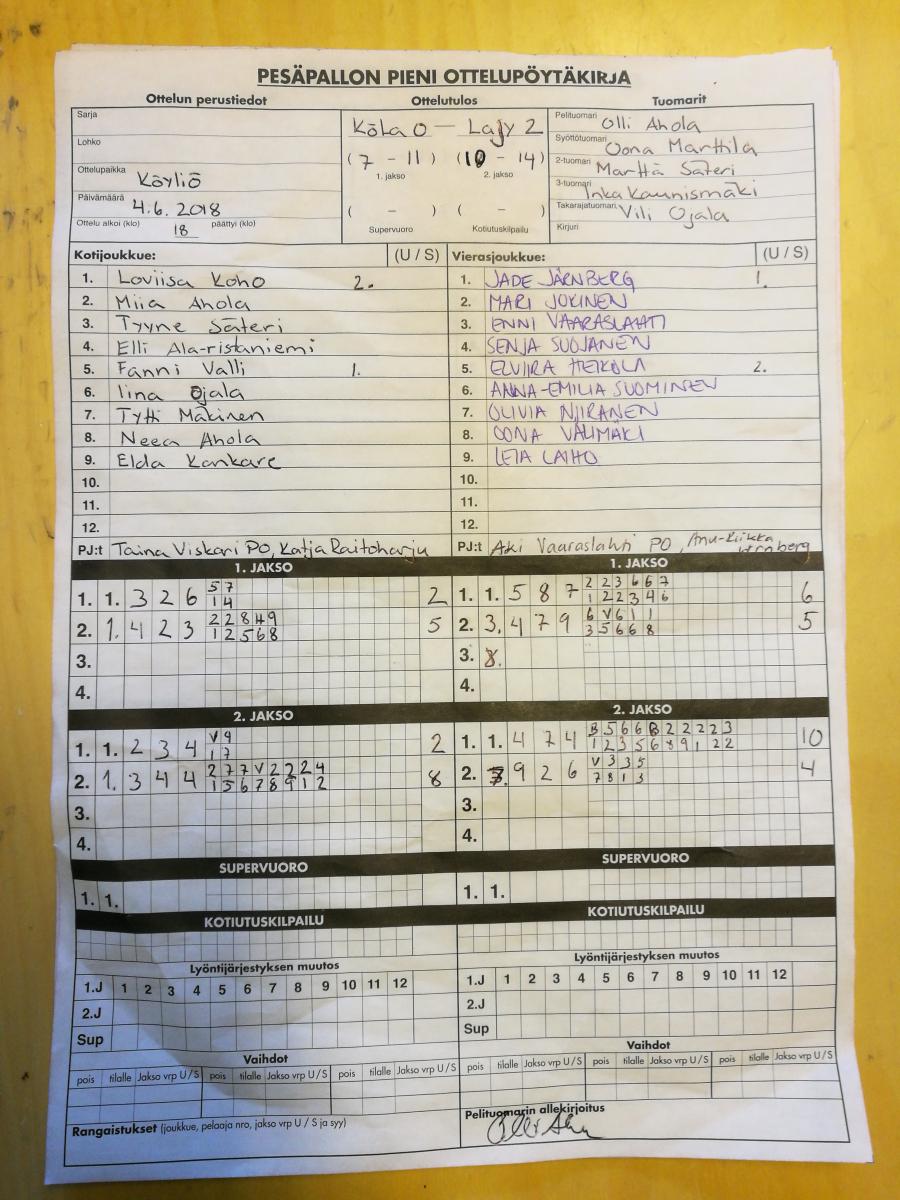 PESÄPALLON PIENI OTTELUPÖYTÄKIRJA
Ottelun perustiedot Ottelutulos Tuomarit
Sarja
Lohko
Ottelupaikka Köyliö
Päivämäärä 4.6.2018
Ottelu alkoi (klo) 18 päättyi (klo)
KöLa 0 — Lajy 2
(7 - 11) (10 - 14)
1. jakso 2. jakso
( - ) ( - )
Supervuoro Kotiutuskilpailu
Pelituomari Olli Ahola
Syöttötuomari Oona Marttila
2-tuomari Marttä Säteri
3-tuomari Inka Kaunismäki
Takarajatuomari Vili Ojala
Kirjuri
Kotijoukkue: (U / S)
1. Loviisa Koho 2.
2. Miia Ahola
3. Tyyne Säteri
4. Elli Ala-ristaniemi
5. Fanni Valli 1.
6. Iina Ojala
7. Tytti Mäkinen
8. Neea Ahola
9. Elda Kankare
10.
11.
12.
PJ:t Taina Viskari PO, Katja Raitoharju
Vierasjoukkue: (U / S)
1. JADE JÄRNBERG 1.
2. MARI JOKINEN
3. ENNI VAARASLAHTI
4. SENJA SUOJANEN
5. ELVIIRA HEIKOLA 2.
6. ANNA-EMILIA SUOMINEN
7. OLIVIA NIIRANEN
8. OONA VÄLIMÄKI
9. LEIA LAIHO
10.
11.
12.
PJ:t Aki Vaaraslahti PO, Anu-Riikka
1. JAKSO
1. 1. 3 2 6 5 7 2
1 4
2. 1. 4 2 3 2 2 8 4 9 5
1 2 5 6 8
3.
4.
1. JAKSO
1. 1. 5 8 7 2 2 3 6 6 7 6
1 2 2 3 4 6
2. 3. 4 7 9 6 V 6 1 1 5
3 5 6 6 8
3. 8.
4.
2. JAKSO
1. 1. 2 3 4 V 9 2
1 7
2. 1. 3 4 4 2 7 7 V 2 2 2 4 8
1 5 6 7 8 9 1 2
3.
4.
2. JAKSO
1. 1. 4 7 4 B 5 6 6 B 2 2 2 2 3 10
1 2 3 5 6 8 9 1 2 2
2. 9 2 6 V 3 3 5 4
7 8 1 3
3.
4.
SUPERVUORO
1. 1.
SUPERVUORO
1. 1.
KOTIUTUSKILPAILU
KOTIUTUSKILPAILU
Lyöntijärjestyksen muutos
1.J 1 2 3 4 5 6 7 8 9 10 11 12
2.J
Sup
Lyöntijärjestyksen muutos
1.J 1 2 3 4 5 6 7 8 9 10 11 12
2.J
Sup
Vaihdot
pois tilalle Jakso vrp U / S pois tilalle Jakso vrp U / S pois tilalle Jakso vrp U / S
Vaihdot
pois tilalle Jakso vrp U / S pois tilalle Jakso vrp U / S pois tilalle Jakso vrp U / S
Rangaistukset (joukkue, pelaaja nro, jakso vrp U / S ja syy)
Pelituomarin allekirjoitus